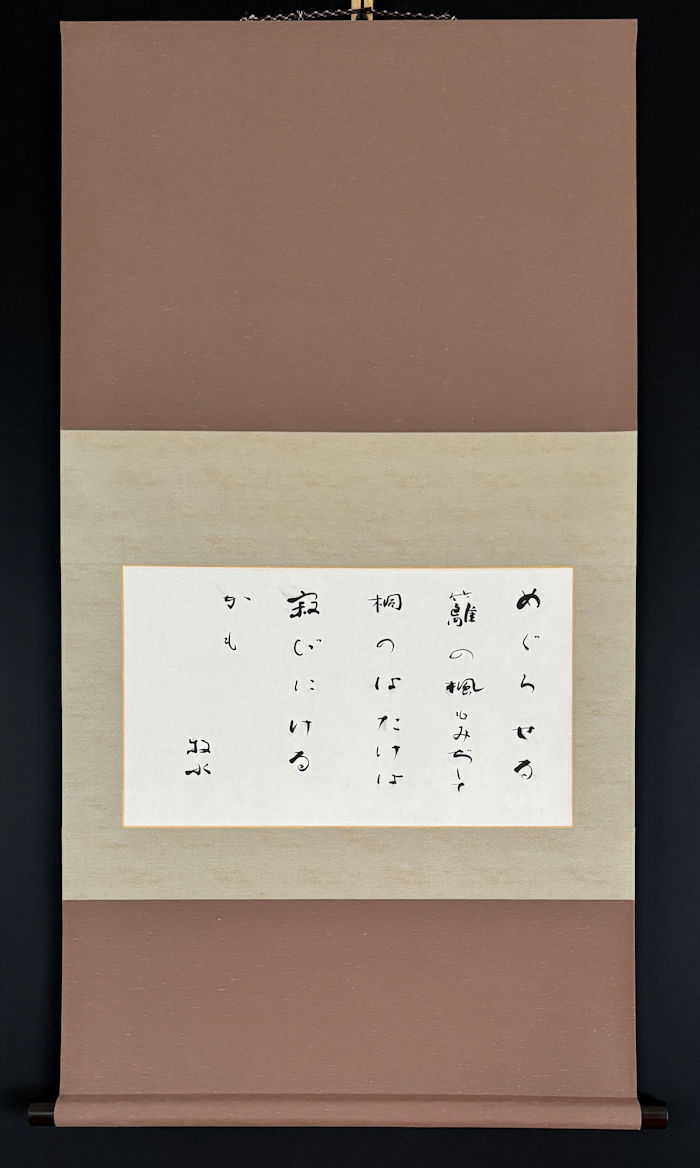 めぐらせる
籬の楓もみぢして
桐のはたけは
寂びにける
かも
牧水